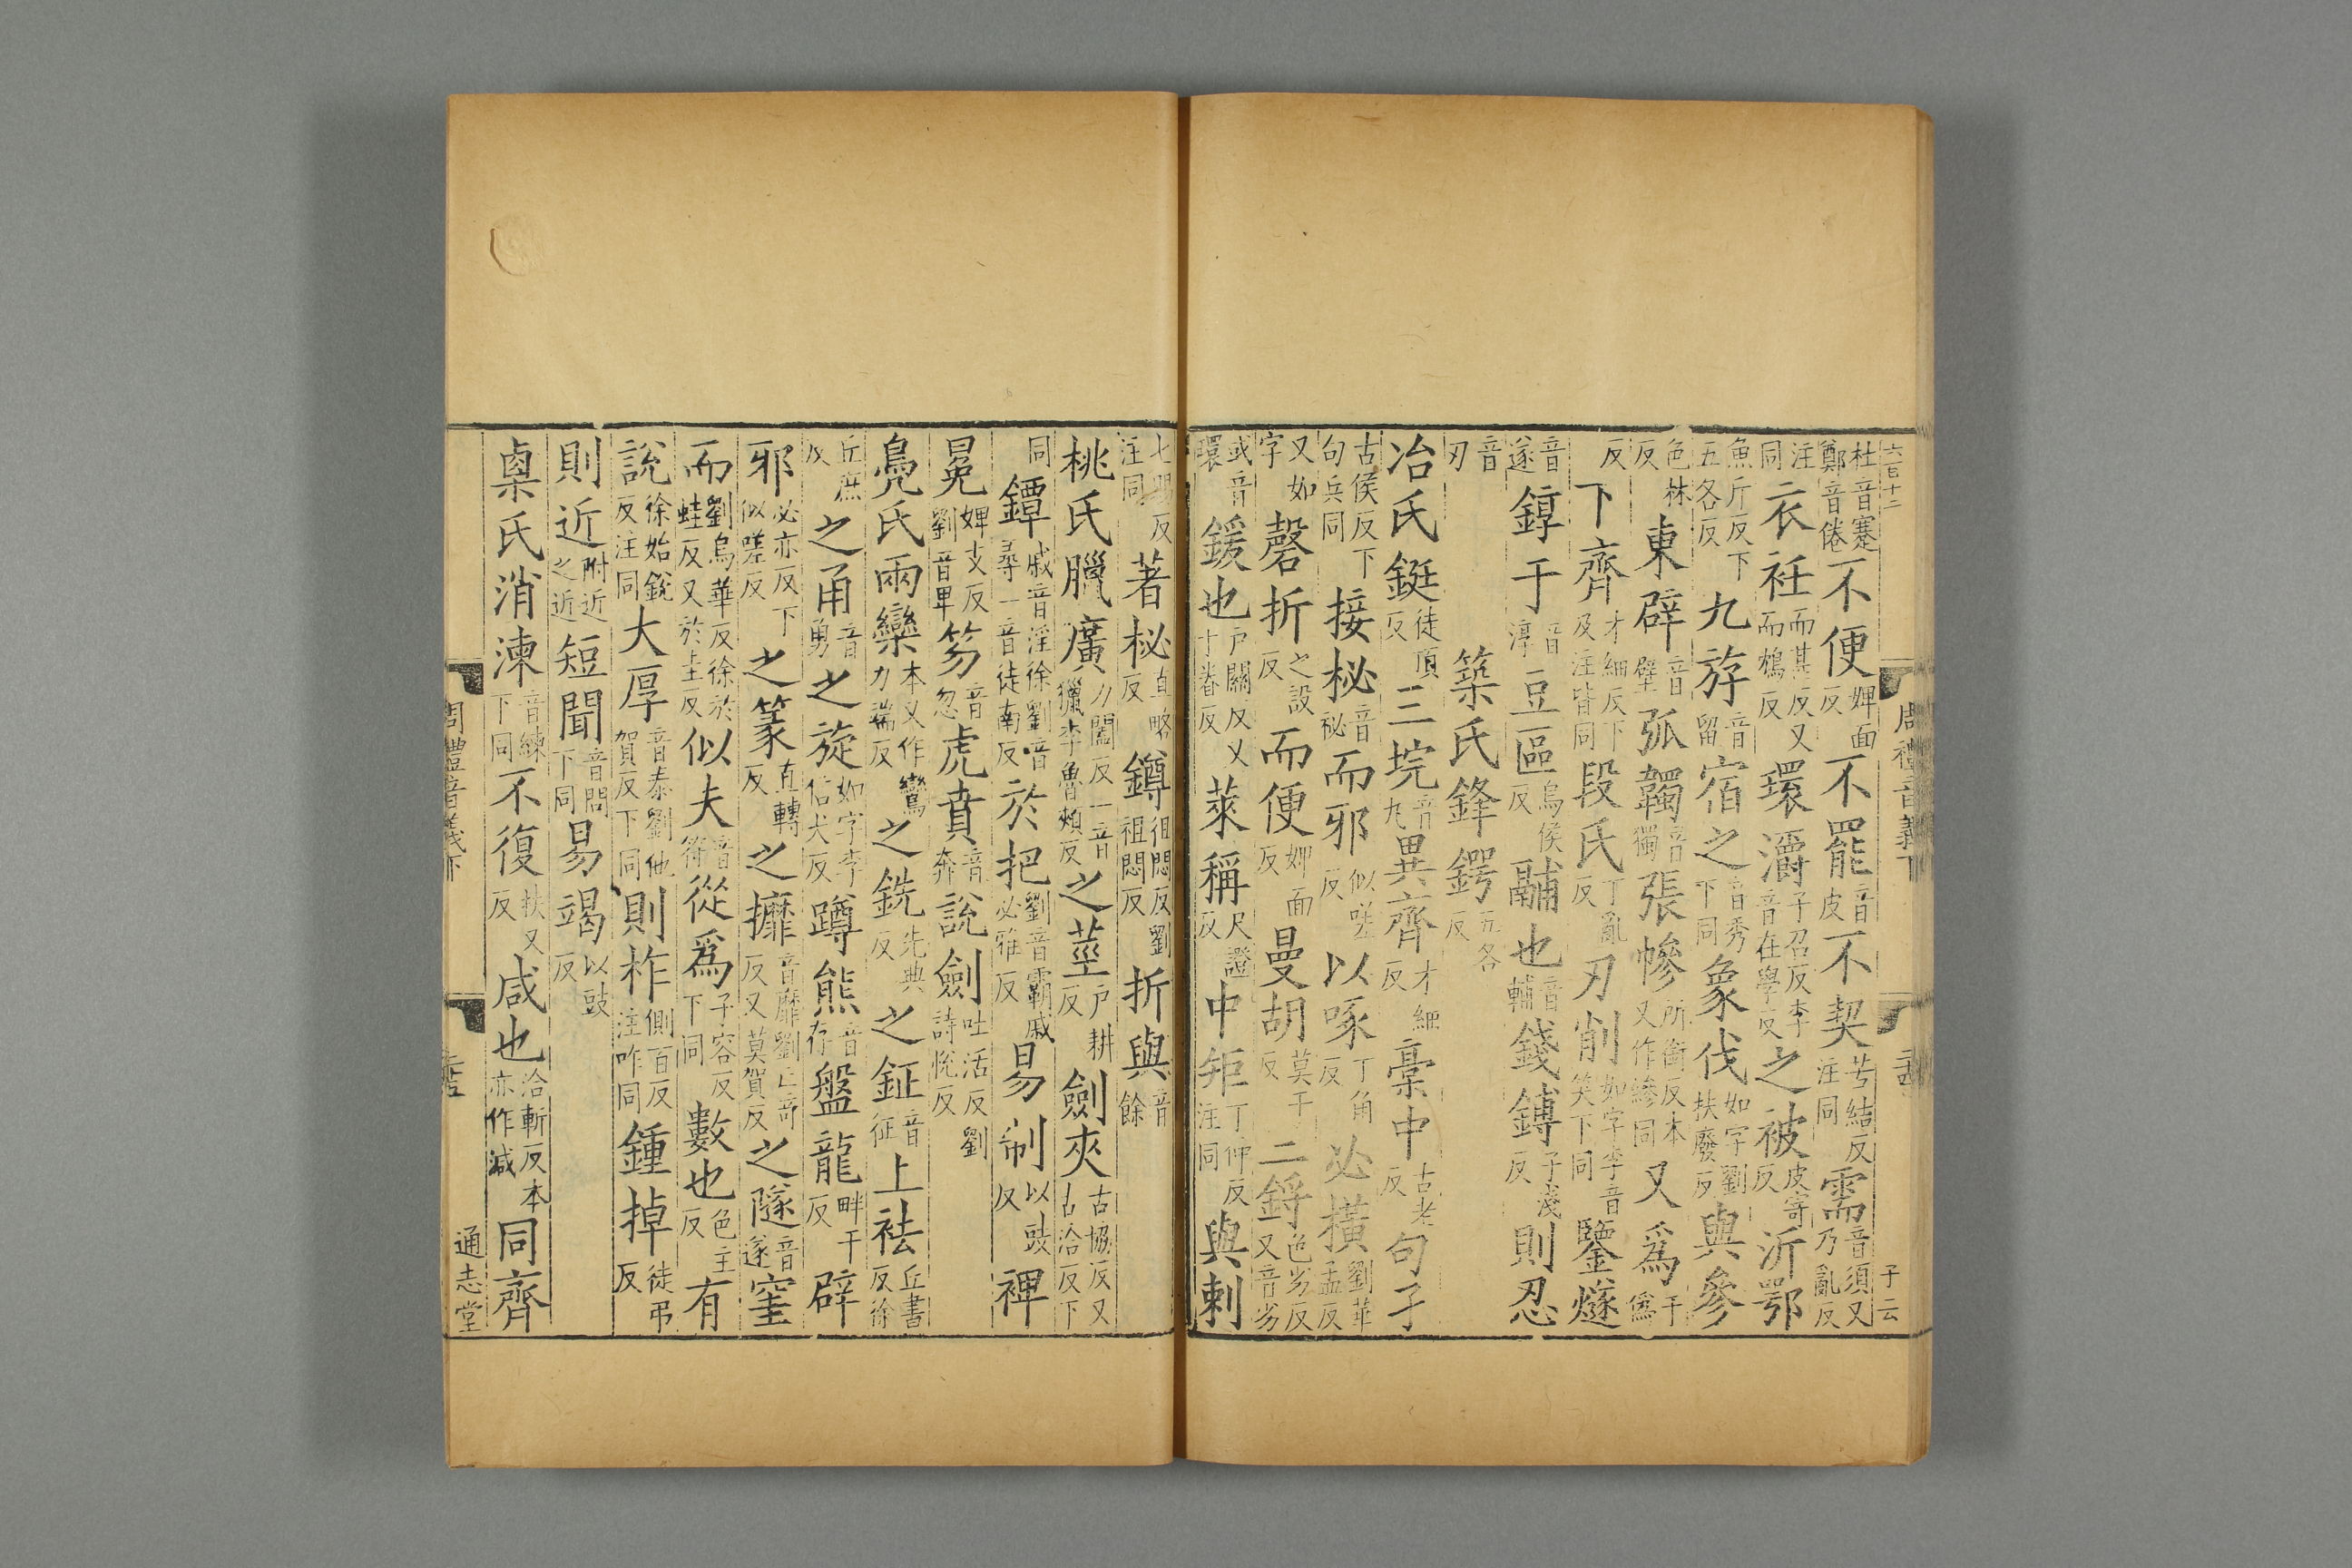 六百十二 子云
杜音蹇鄭音倦不便婢面反不罷音皮不契苦結反注同需音須又乃亂反
注同衣衽而甚反又而鴆反環灂子召反李音在學反之被皮寄反沂鄂
魚斤反下五各反九斿音留宿之音秀下同象伐如字劉扶廢反與參
色林反東辟音壁弧韣音獨張幓所銜反本又作縿同又爲于僞
反下齊才細反下及注皆同段氏丁亂反刃削如字李音笑下同鑒燧
音遂錞于音淳豆區烏侯反鬴也音輔錢鎛子淺反則忍
音刃築氏鋒鍔五各反
冶氏鋌徒頂反三垸音丸異齊才細反槀中古老反句孑
古侯反下句兵同接柲音祕而邪似嗟反以啄丁角反必橫劉華孟反
又如字磬折之設反而便婢面反曼胡莫干反二鋝色劣反又音劣
或音環鍰也戶關反又十眷反萊稱尺證反中矩丁仲反注同與刺
七賜反注同著柲直略反鐏徂悶反劉祖悶反折與音餘
桃氏臘廣力闔反一音獵李魯頰反之莖戶耕反劍夾古協反又古洽反下
同鐔戚音淫徐劉音尋一音徒南反於把劉音霸戚必雅反易制以豉反裨
冕婢支反劉音卑笏音忽虎賁音奔說劍吐活反劉詩悅反
鳧氏兩欒本又作鸞力端反之銑先典反之鉦音征上祛丘書反徐
丘庶反之甬音勇之旋如字李信犬反蹲熊音存盤龍畔干反辟
邪必亦反下似嗟反之篆直轉反之攠音靡劉亡奇反又莫賀反之隧音遂窐
而劉烏華反徐於蛙反又於圭反似夫音符從爲子容反下同數也色主反有
說徐始銳反注同大厚音泰劉他賀反下同則柞側百反注咋同鍾掉徒弔反
則近附近之近短聞音問下同易竭以豉反
㮚氏消湅音練下同不復扶又反咸也洽斬反本亦作減同齊
通志堂
周禮音義下